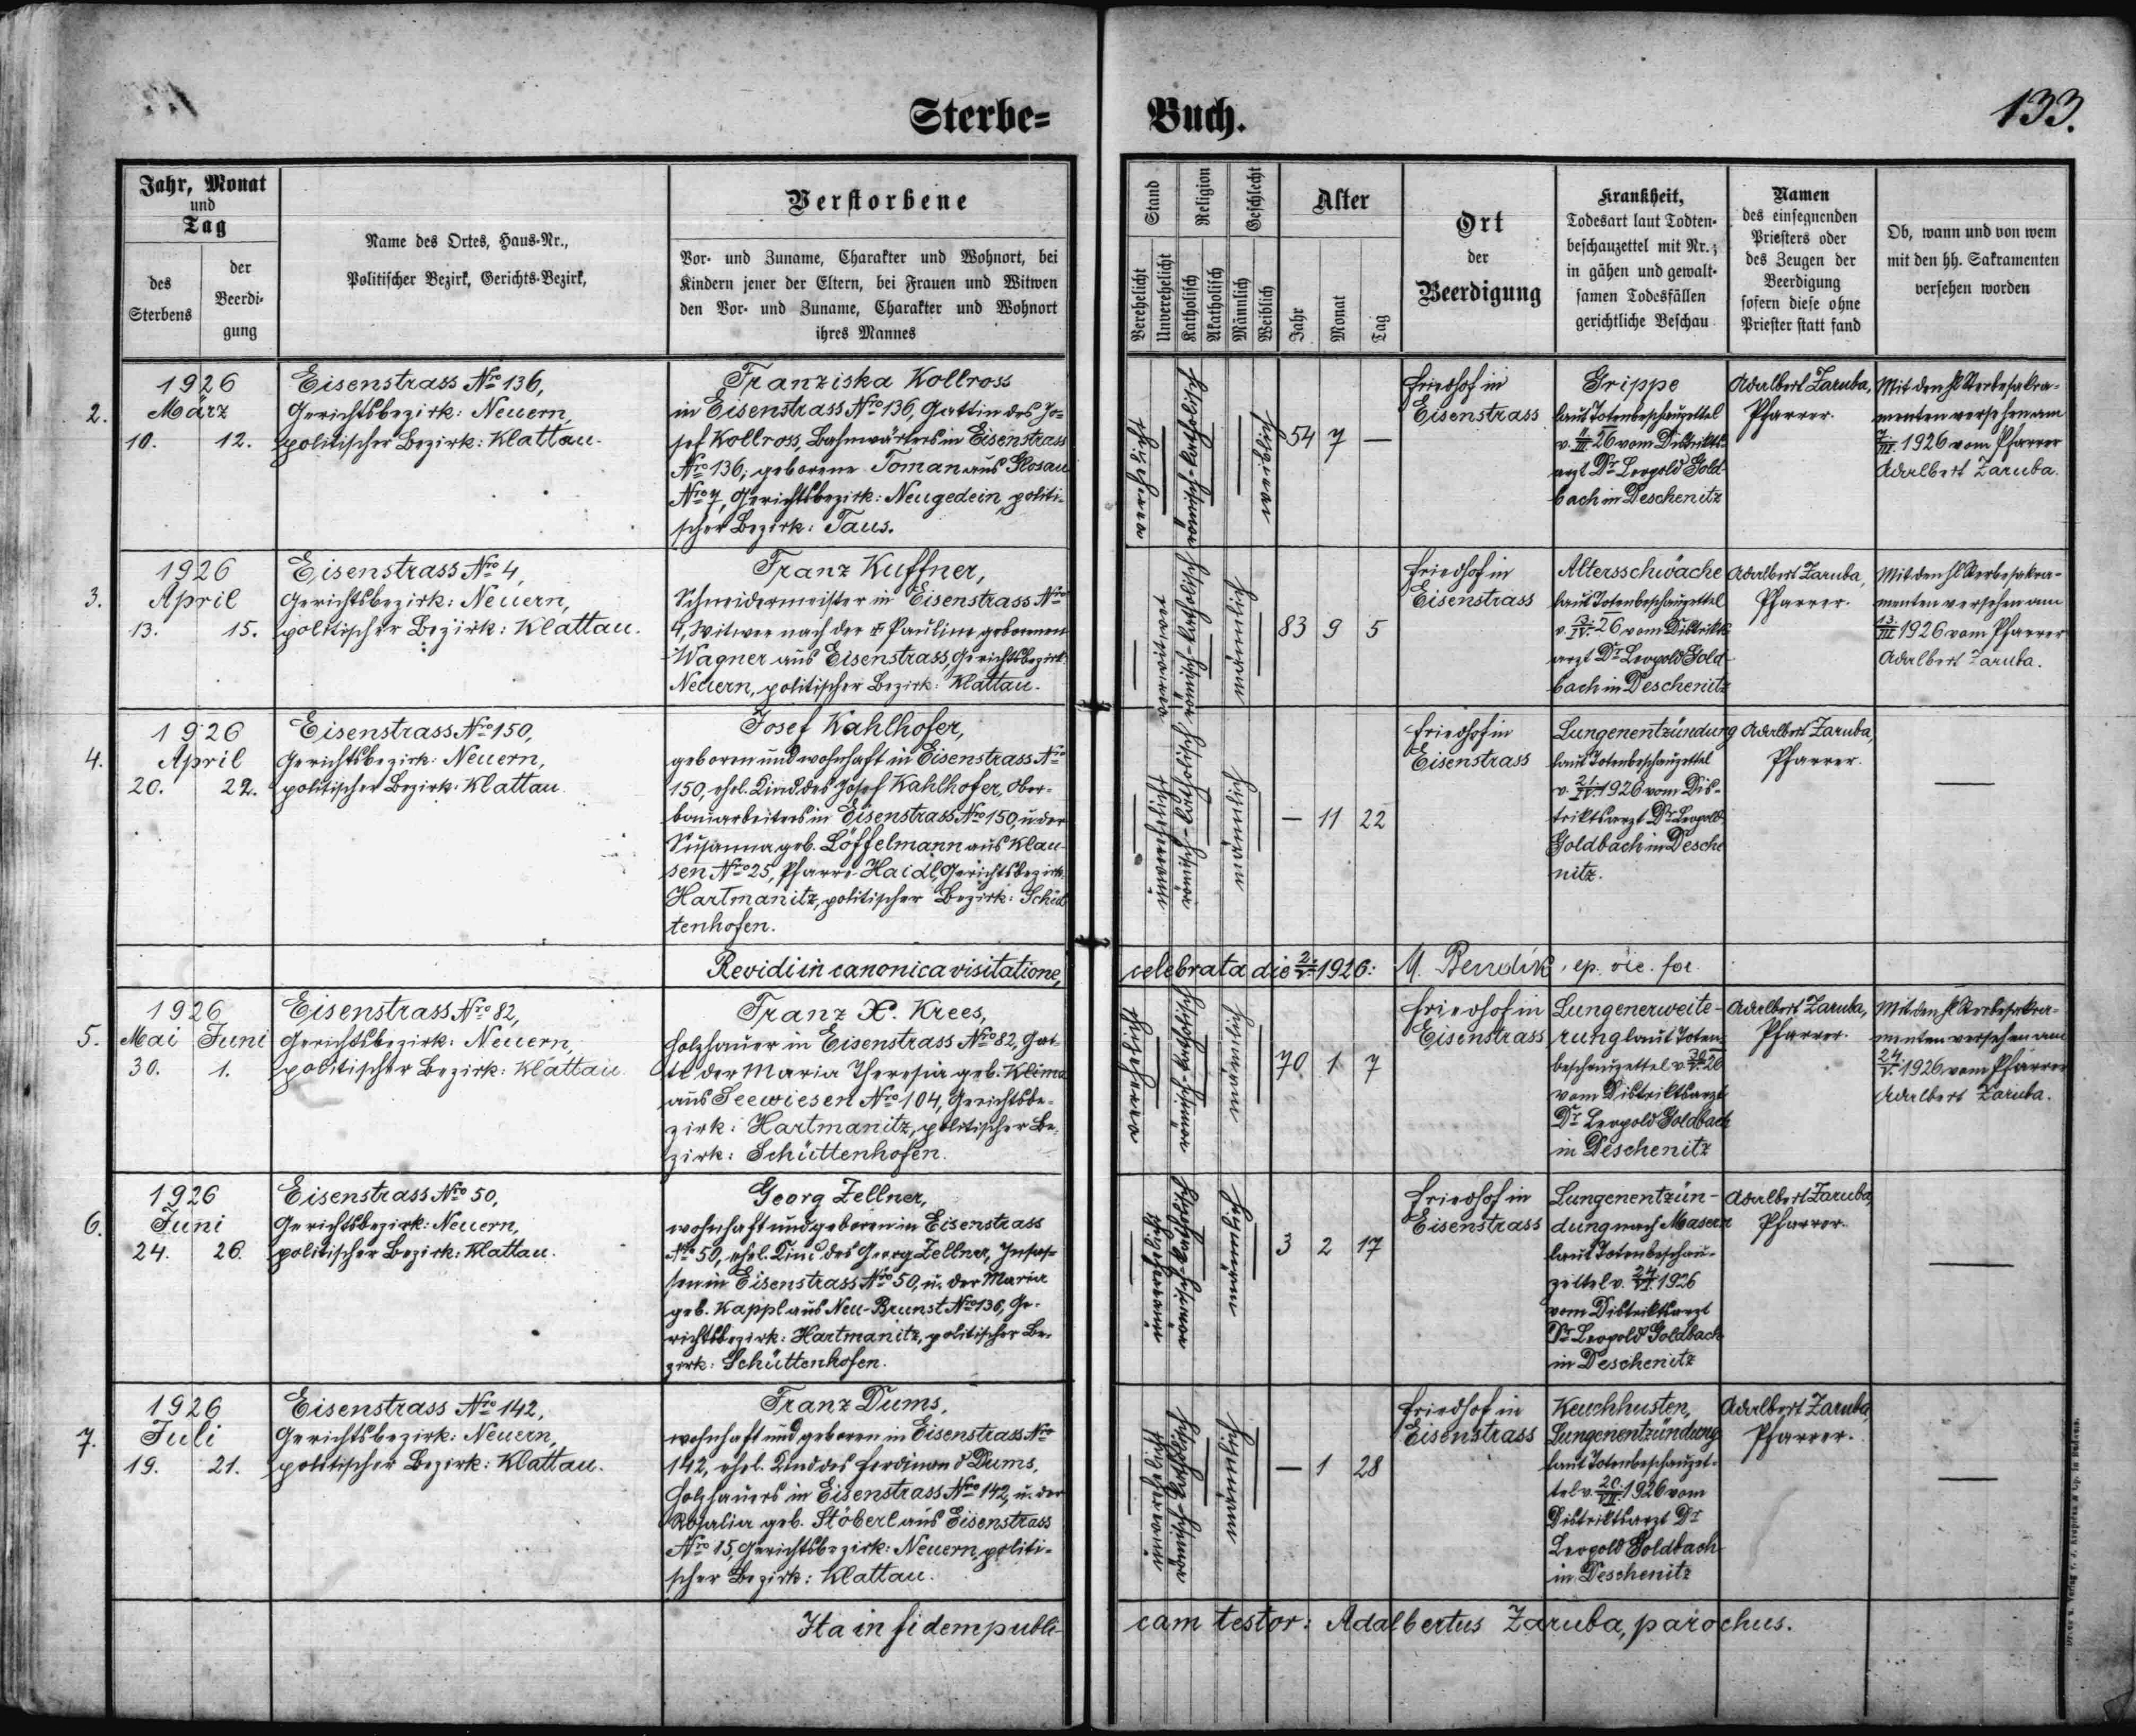 Sterbe= Buch.
133.
Jahr, Monat
und
Tag
des
Sterbens
der
Beerdi-
gung
Name des Ortes, Haus-Nr.,
Politischer Bezirk, Gerichts-Bezirk,
Verstorbene
Vor- und Zuname, Charakter und Wohnort, bei
Kindern jener der Eltern, bei Frauen und Witwen
den Vor- und Zuname, Charakter und Wohnort
ihres Mannes
Stand
Verehelicht
Unverehelicht
Religion
Katholisch
Akatholisch
Geschlecht
Männlich
Weiblich
Alter
Jahr
Monat
Tag
Ort
der
Beerdigung
Krankheit,
Todesart laut Todten-
beschauzettel mit Nr.;
in gähen und gewalt-
samen Todesfällen
gerichtliche Beschau
Namen
des einsegnenden
Priesters oder
des Zeugen der
Beerdigung
sofern diese ohne
Priester statt fand
Ob, wann und von wem
mit den hh. Sakramenten
versehen worden
2.
1926
März
10. 12.
Eisenstrass Nro 136,
Gerichtsbezirk: Neuern,
politischer Bezirk: Klattau.
Franziska Kollross
in Eisenstrass Nro 136, Gattin des Jo-
sef Kollross, Bahnwärters in Eisenstrass
Nro 136; geborene Toman aus Glosau
Nro 7, Gerichtsbezirk: Neugedein, politi-
scher Bezirk: Taus.
verehelicht
römisch-katholisch
weiblich
54 7 —
Friedhof in
Eisenstrass
Grippe
laut Totenbeschauzettel
v. 11./III. 26 vom Distrikts-
arzt Dr Leopold Gold-
bach in Deschenitz
Adalbert Zaruba,
Pfarrer.
Mit den hl. Sterbesakra-
menten versehen am
7./III. 1926 vom Pfarrer
Adalbert Zaruba.
3.
1926
April
13. 15.
Eisenstrass Nro 4,
Gerichtsbezirk: Neuern,
politischer Bezirk: Klattau.
Franz Kuffner,
Schneidermeister in Eisenstrass Nro
4, Witwer nach der † Pauline geborenen
Wagner aus Eisenstrass, Gerichtsbezirk:
Neuern, politischer Bezirk: Klattau.
verwitwet
römisch-katholisch
männlich
83 9 5
Friedhof in
Eisenstrass
Altersschwäche
laut Totenbeschauzettel
v. 13./IV. 26 vom Distrikts
arzt Dr Leopold Gold-
bach in Deschenitz
Adalbert Zaruba,
Pfarrer.
Mit den hl. Sterbesakra-
menten versehen am
13./III. 1926 vom Pfarrer
Adalbert Zaruba.
4.
1926
April
20. 22.
Eisenstrass Nro 150,
Gerichtsbezirk: Neuern,
politischer Bezirk: Klattau.
Josef Kahlhofer,
geboren und wohnhaft in Eisenstrass Nro
150, ehel. Kind des Josef Kahlhofer, Ober-
bauarbeiters in Eisenstrass Nro 150, u. der
Susanna geb. Löffelmann aus Klau-
sen Nro 25, Pfarre Haidl, Gerichtsbezirk:
Hartmanitz, politischer Bezirk: Schüt
tenhofen.
unverehelicht
römisch-katholisch
männlich
— 11 22
Friedhof in
Eisenstrass
Lungenentzündung
laut Totenbeschauzettel
v. 21./IV. 1926 vom Dis-
triktsarzt Dr Leopold
Goldbach in Desche
nitz.
Adalbert Zaruba,
Pfarrer.
—
Revidi in canonica visitatione, celebrata die 2./V. 1926: M. Bendík, ep. vic. for.
5.
1926
Mai Juni
30. 1.
Eisenstrass Nro 82,
Gerichtsbezirk: Neuern,
politischer Bezirk: Klattau.
Franz X. Krees,
Holzhauer in Eisenstrass Nro 82, Gat-
te der Maria Theresia geb. Klima
aus Seewiesen Nro 104, Gerichtsbe-
zirk: Hartmanitz, politischer Be-
zirk: Schüttenhofen.
verehelicht
römisch-katholisch
männlich
70 1 7
Friedhof in
Eisenstrass
Lungenerweite-
rung laut Toten-
beschauzettel v. 30./V. 26
vom Distriktsarzt
Dr Leopold Goldbach
in Deschenitz
Adalbert Zaruba,
Pfarrer.
Mit den hl. Sterbesakra-
menten versehen am
24./V. 1926 vom Pfarrer
Adalbert Zaruba.
6.
1926
Juni
24. 26.
Eisenstrass Nro 50,
Gerichtsbezirk: Neuern,
politischer Bezirk: Klattau.
Georg Zellner,
wohnhaft und geboren in Eisenstrass
Nro 50, ehel. Kind des Georg Zellner, Insas-
sen in Eisenstrass Nro 50, u. der Maria
geb. Kappl aus Neu-Brunst Nro 136, Ge-
richtsbezirk: Hartmanitz, politischer Be-
zirk: Schüttenhofen.
unverehelicht
römisch-katholisch
männlich
3 2 17
Friedhof in
Eisenstrass
Lungenentzün-
dung nach Masern
laut Totenbeschau-
zettel v. 24./VI. 1926
vom Distriktsarzt
Dr Leopold Goldbach
in Deschenitz
Adalbert Zaruba,
Pfarrer.
—
7.
1926
Juli
19. 21.
Eisenstrass Nro 142,
Gerichtsbezirk: Neuern,
politischer Bezirk: Klattau.
Franz Dums,
wohnhaft und geboren in Eisenstrass Nro
142, ehel. Kind des Ferdinand Dums,
Holzhauers in Eisenstrass Nro 142, u. der
Rosalia geb. Stöberl aus Eisenstrass
Nro 15, Gerichtsbezirk: Neuern, politi-
scher Bezirk: Klattau.
unverehelicht
römisch-katholisch
männlich
— 1 28
Friedhof in
Eisenstrass
Keuchhusten,
Lungenentzündung
laut Totenbeschauzet-
tel v. 20./VII. 1926 vom
Distriktsarzt Dr
Leopold Goldbach
in Deschenitz
Adalbert Zaruba,
Pfarrer.
—
Ita in fidem publi- cam testor: Adalbertus Zaruba, parochus.